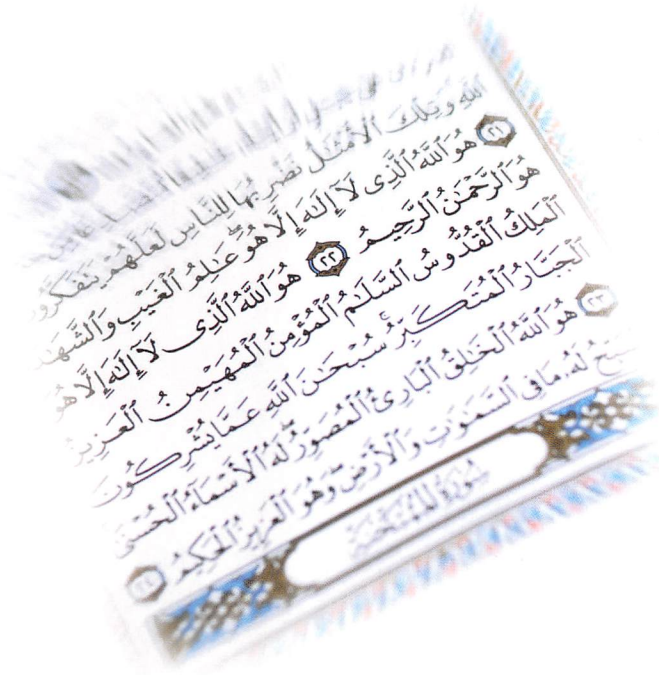 ٱللَّهِ وَتِلْكَ ٱلْأَمْثَٰلُ نَضْرِبُهَا لِلنَّاسِ لَعَلَّهُمْ يَتَفَكَّرُو
٢١ هُوَ ٱللَّهُ ٱلَّذِى لَآ إِلَٰهَ إِلَّا هُوَ عَٰلِمُ ٱلْغَيْبِ وَٱلشَّهَٰ
هُوَ ٱلرَّحْمَٰنُ ٱلرَّحِيمُ ٢٢ هُوَ ٱللَّهُ ٱلَّذِى لَآ إِلَٰهَ إِلَّا هُوَ
ٱلْمَلِكُ ٱلْقُدُّوسُ ٱلسَّلَٰمُ ٱلْمُؤْمِنُ ٱلْمُهَيْمِنُ ٱلْعَزِيزُ
ٱلْجَبَّارُ ٱلْمُتَكَبِّرُ ۚ سُبْحَٰنَ ٱللَّهِ عَمَّا يُشْرِكُونَ
٢٣ هُوَ ٱللَّهُ ٱلْخَٰلِقُ ٱلْبَارِئُ ٱلْمُصَوِّرُ ۖ لَهُ ٱلْأَسْمَآءُ ٱلْحُسْنَىٰ
سَبِّحُ لَهُۥ مَا فِى ٱلسَّمَٰوَٰتِ وَٱلْأَرْضِ ۖ وَهُوَ ٱلْعَزِيزُ ٱلْحَكِيمُ ٢٤
سُورَةُ ٱلْمُمْتَحَنَةِ